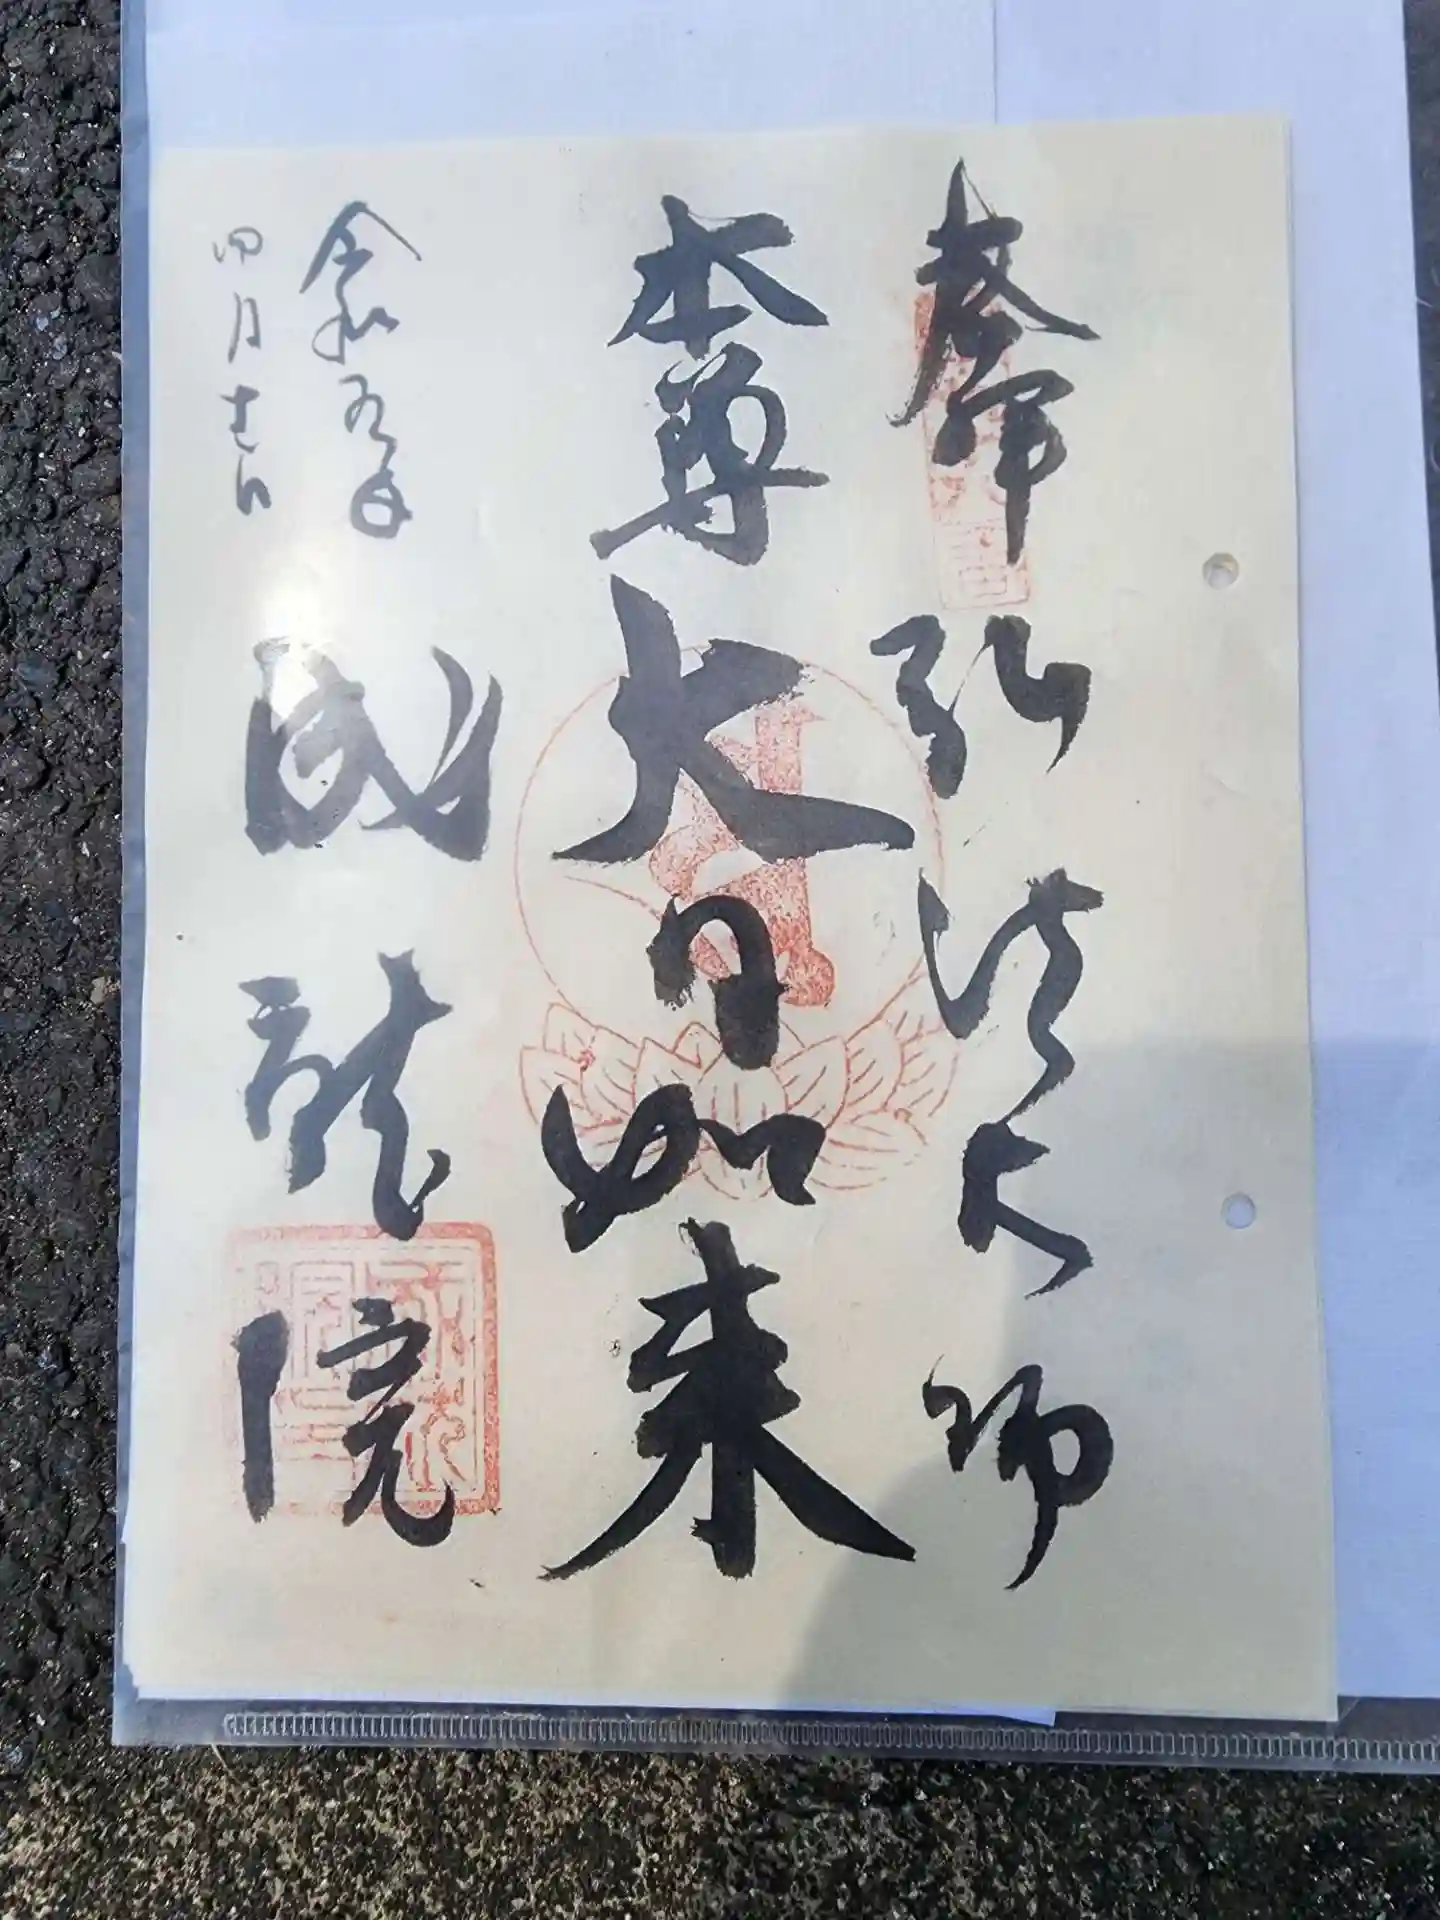 奉拝
弘法大師
本尊
大日如来
令和五年
四月十一日
成龍院